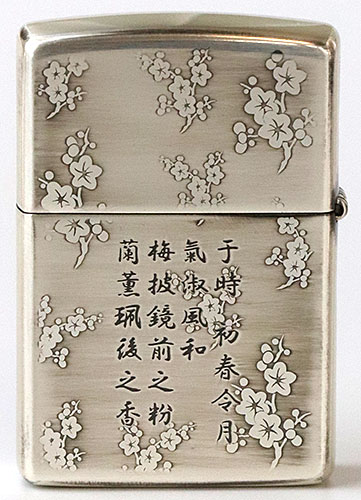 于時初春令月
氣淑風和
梅披鏡前之粉
蘭薫珮後之香